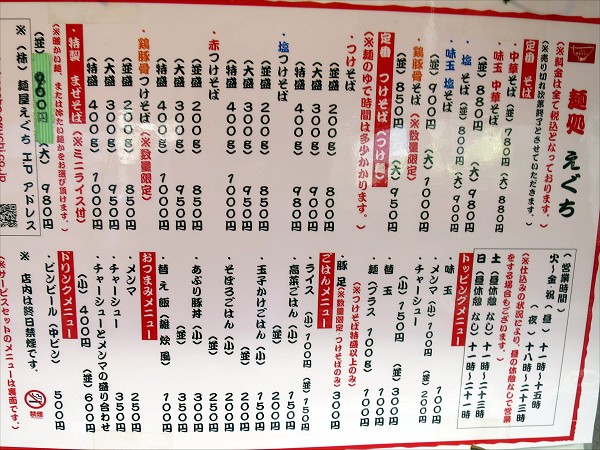 麺処 えぐち
(※料金は全て税込となっております。)
(※売り切れ次第終了とさせていただきます。)
定番 そば
・中華そば (並)780円 (大)880円
・味玉 中華そば
(並)880円 (大)980円
・塩そば (並)800円 (大)900円
・味玉 塩そば
(並)900円 (大)1000円
・鶏豚骨そば (※数量限定)
(並)850円 (大)950円
定番 つけそば (つけ麺)
(※麺のゆで時間は多少かかります。)
・つけそば
(並盛 200g) 850円
(大盛 300g) 950円
(特盛 400g) 1000円
・塩つけそば
(並盛 200g) 850円
(大盛 300g) 950円
(特盛 400g) 1000円
・赤つけそば
(並盛 200g) 850円
(大盛 300g) 950円
(特盛 400g) 1000円
・鶏豚骨つけそば (※数量限定)
(並盛 200g) 850円
(大盛 300g) 950円
(特盛 400g) 1000円
・特製 まぜそば (※ミニライス付)
(※暖かい麺、または冷たい麺かをお選び頂けます。)
(並) (大) 980円
※ (株) 麺屋えぐち HP アドレス
(営業時間)
火〜金 祝 (昼) 十一時〜十五時
(夜) 十八時〜二十三時
(※仕込みの状況により、昼の休憩なしで営業をする場合もございます。)
土 (昼休憩 なし) 十一時〜二十三時
日 (昼休憩 なし) 十一時〜二十一時
トッピングメニュー
・味玉 100円
・メンマ (小)100円 (並)200円
・チャーシュー
(小)150円 (並)300円
・替玉 100円
・麺(プラス 100g) 100円
(※つけそば特盛以上のみ)
・豚足 (※数量限定 つけそばのみ) 300円
ごはんメニュー
・ライス (小)100円 (並)150円
・高菜ごはん (小) 200円
・玉子かけごはん (小) 150円
・そぼろごはん (小) 200円
・あぶり豚丼 (小) 250円
・替え飯 (雑炊風) 100円
おつまみメニュー
・メンマ 250円
・チャーシュー 350円
・チャーシューとメンマの盛り合わせ
(小) 400円 (並) 600円
ドリンクメニュー
・ビンビール (中ビン) 500円
※ 店内は終日禁煙です。
禁煙
(※サービスセットのメニューは裏面です。)